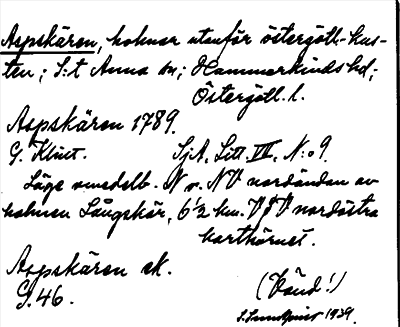 Aspskären, holmar utanför östergötl.-kus-
ten; S:t Anna sn; Hammarkinds hd;
Östergötl. l.
Aspskären 1789.
G. Klint. SjA, Litt. VII, N:o 9.
Läge omedelb. N o. NV nordändan av
holmen Långskär, 6 1/2 km. V nordöstra
karthörnet.
Aspskären ek.
G. 46. (Vänd!)
1939.